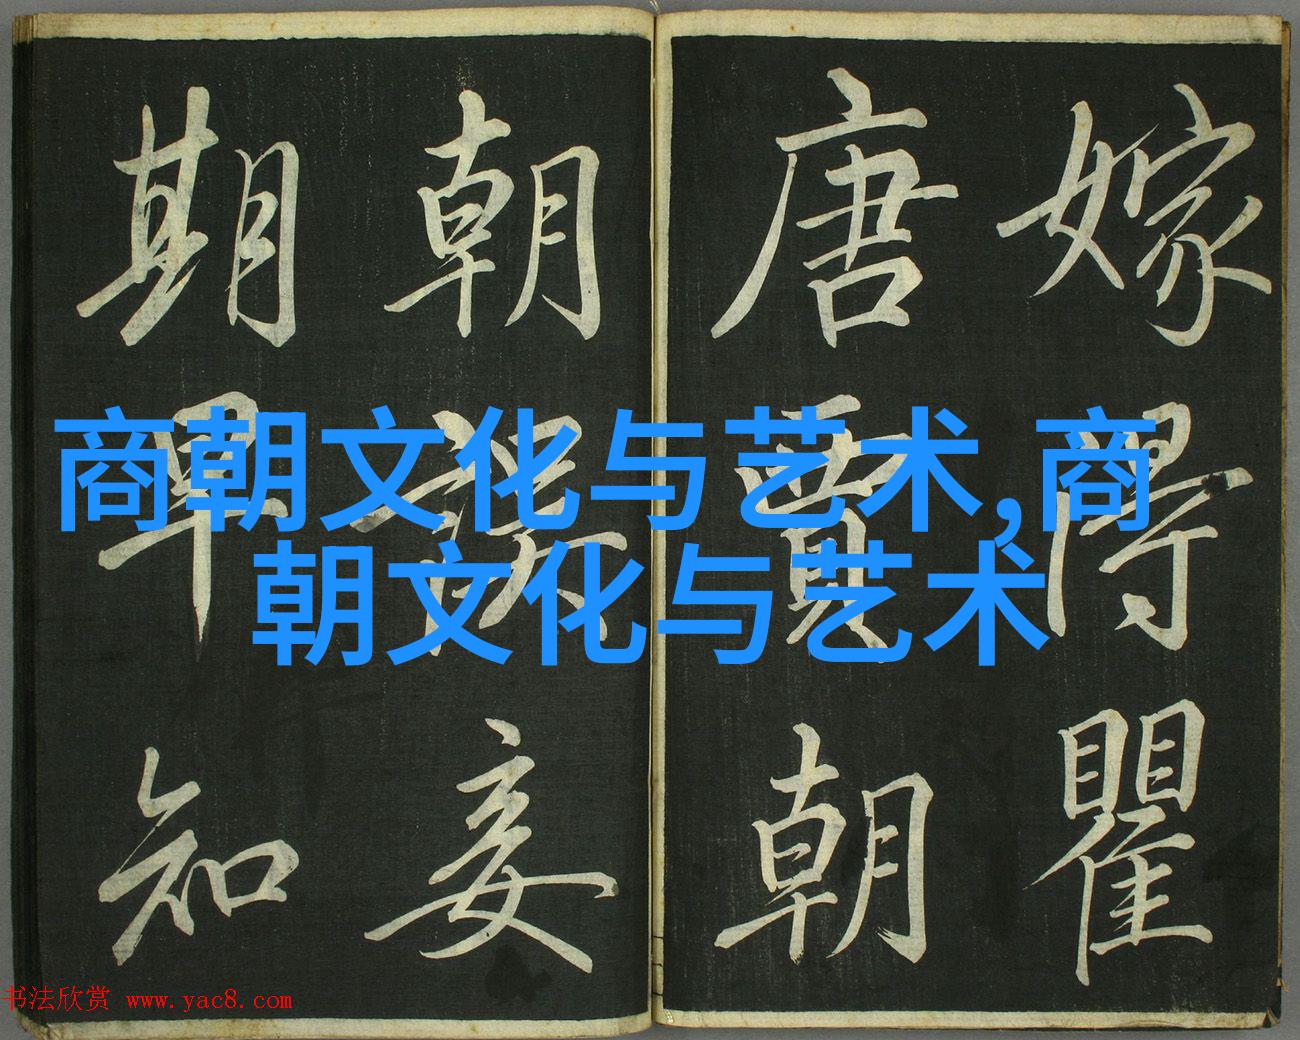 嫁得瞿
唐賈朝
朝誤妾
期早知
商朝文化与艺术,商
朝文化与艺术
书法欣赏 www.yac8.com